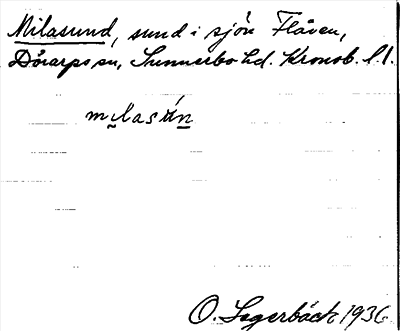 Milasund, sund i sjön Flåren,
Dörarps sn, Sunnerbo hd. Kronob. l.
milasún
O. Lagerbäck 1936